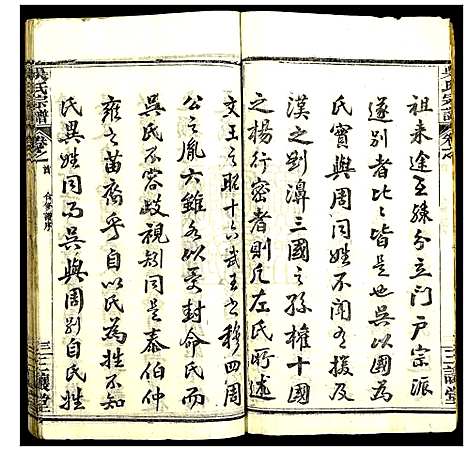 祖来途至孫分立門戶宗派
遂別者比比皆是也吳國為
氏實與周同姓不聞有援及
漢之劉濞三國之孫權十國
之楊行密者則凡左氏所述
文王之昭十六武王之穆四周
公之胤六雖各以受封命氏而
吳氏不容歧視矧同是泰伯仲
雍之苗裔乎自以氏為姓不知
氏異姓同而吳與周別自氏姓
吳氏宗譜
卷之首
合修譜序
三讓堂